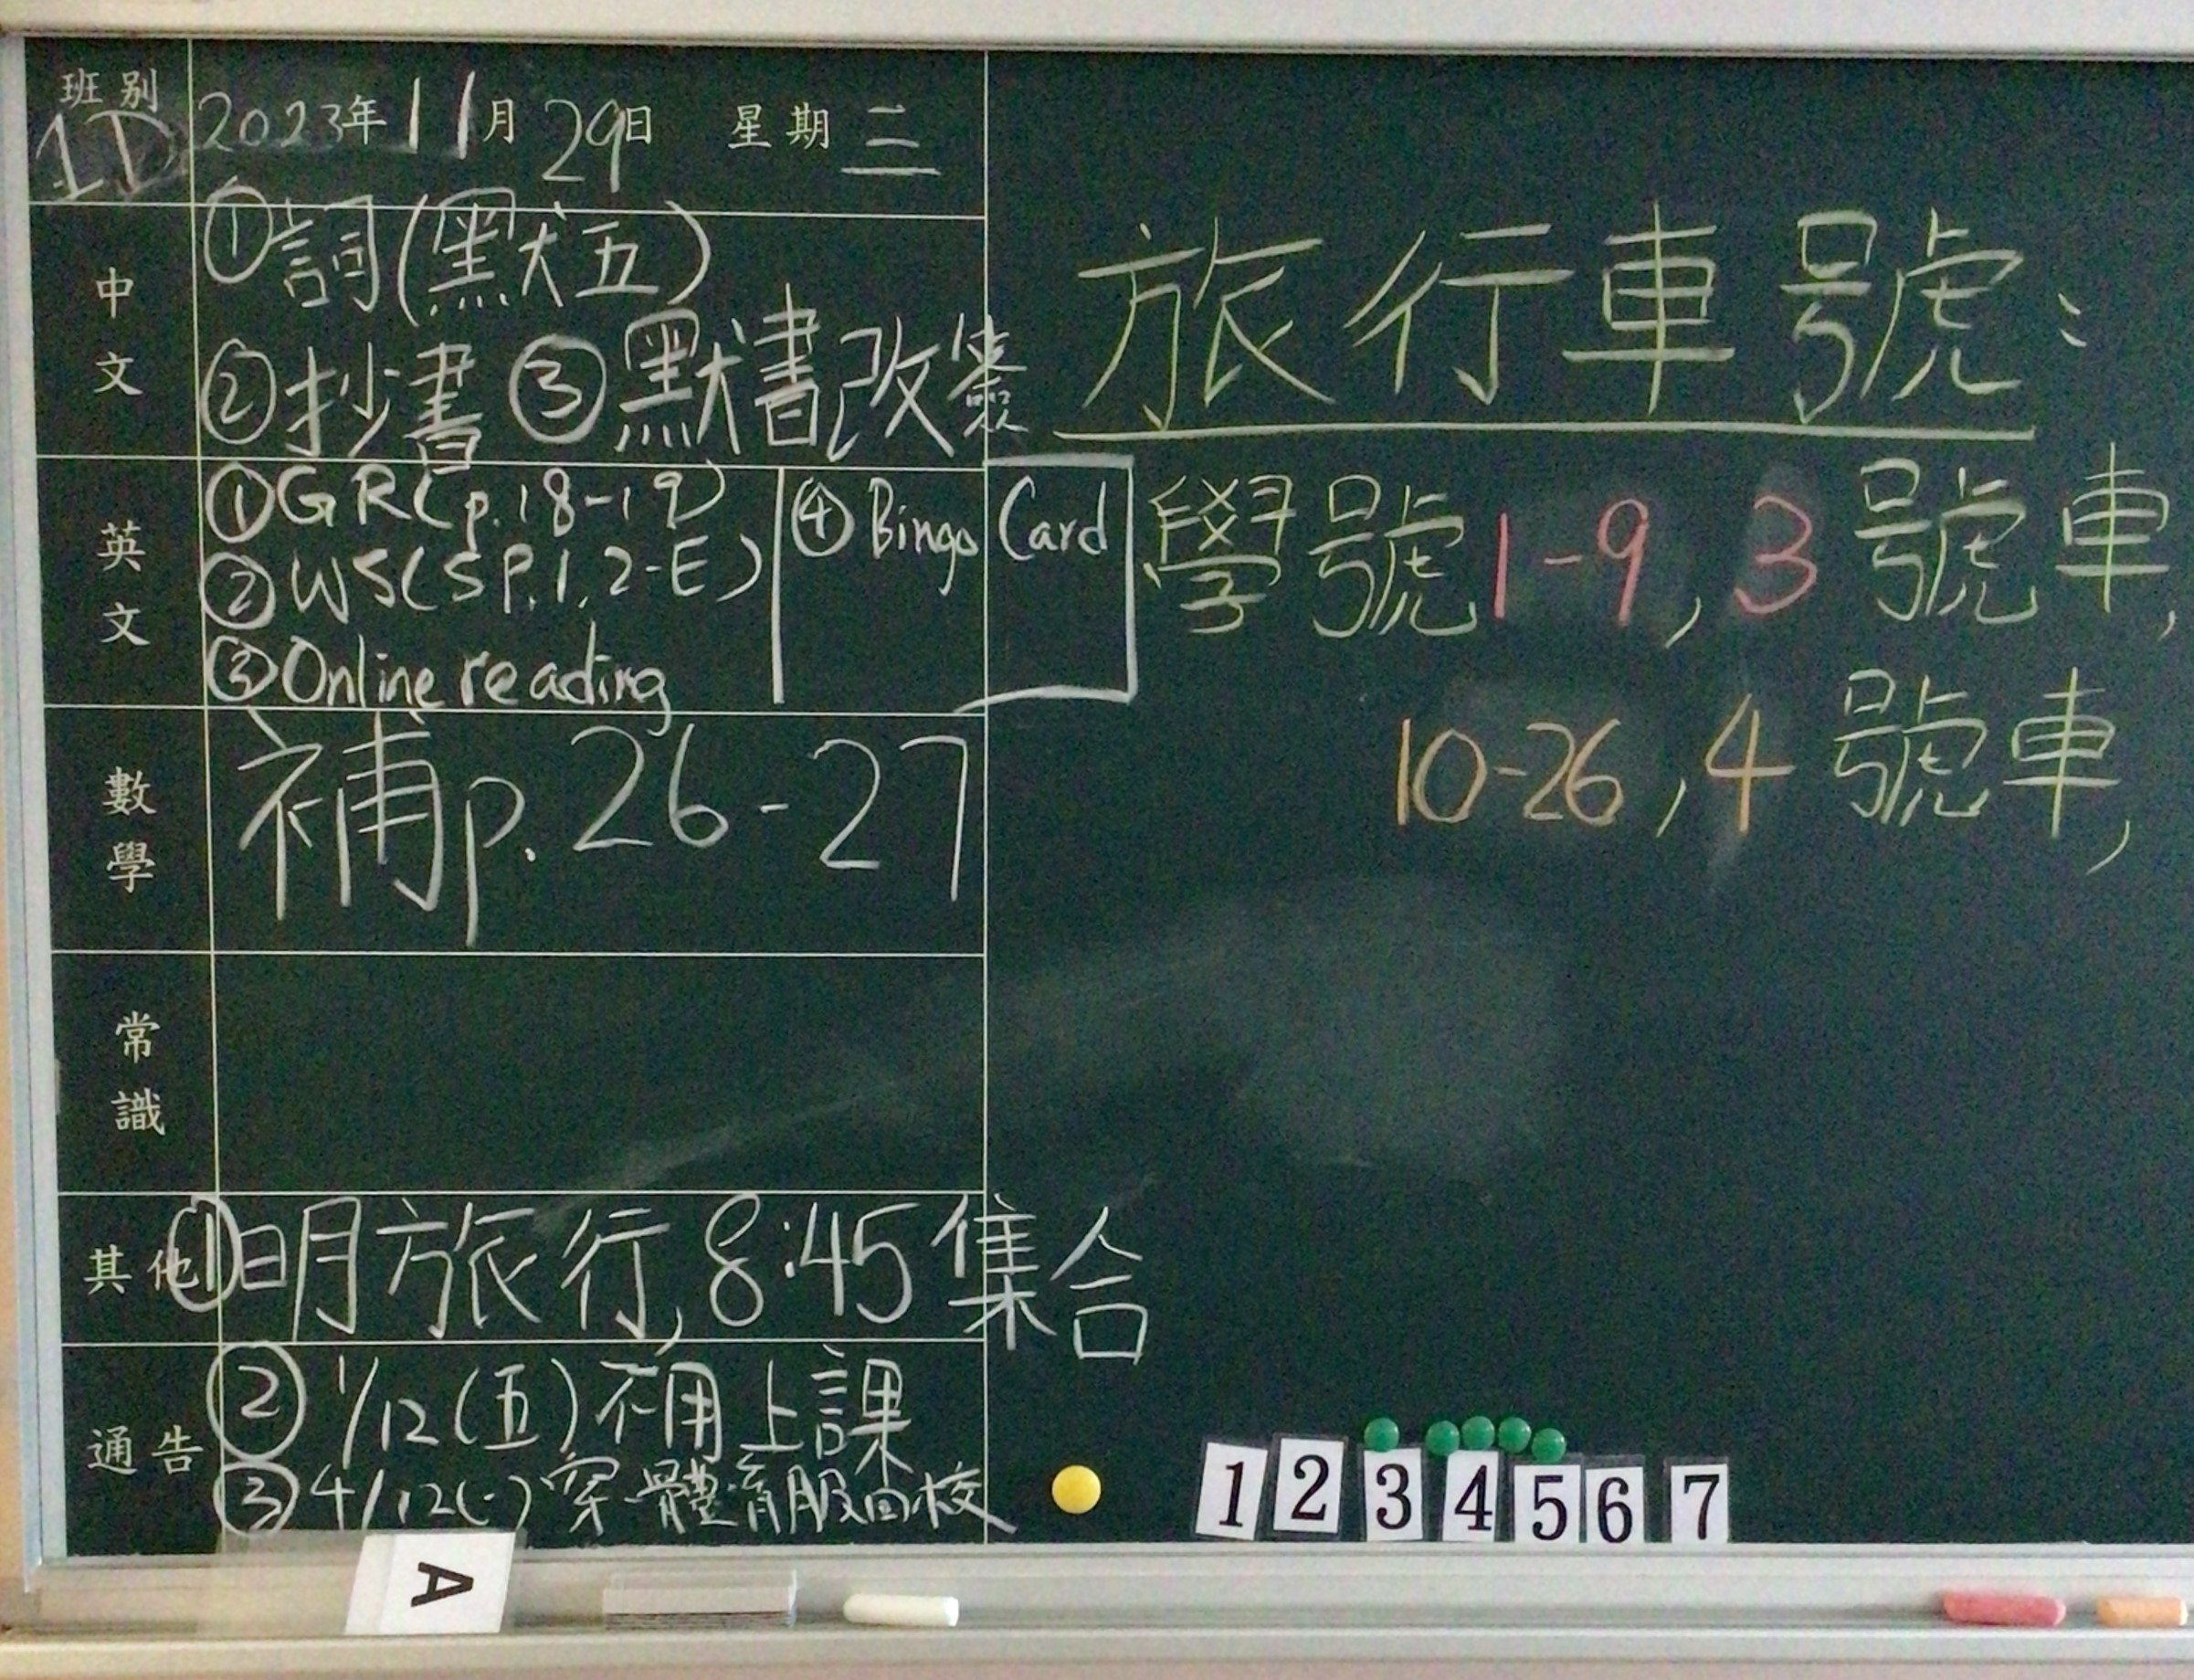 班別
1D
2023年11月29日 星期三
中文
①詞(默五)
②抄書 ③默書改
英文
①GR(p.18-19)
②WS(SP.1,2-E)
③Online reading
④Bingo Card
數學
補p.26-27
常識
其他
①明旅行,8:45集合
通告
②1/12(五)不用上課
③4/12(一)穿體育服回校
旅行車號:
學號1-9,3號車,
10-26,4號車,
1 2 3 4 5 6 7
A